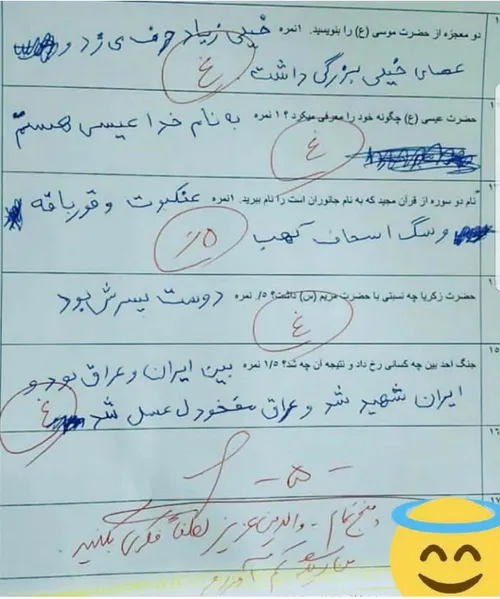 دو معجزه از حضرت موسی (ع) را بنویسید. ۱نمره خیلی زیاد حرف می زد و
عصای خیلی بزرگی داشت. غ
حضرت عیسی (ع) چگونه خود را معرفی میکرد ؟ ۱ نمره به نام خدا عیسی هستم
غ
نام دو سوره از قرآن مجید که به نام جانوران است را نام ببرید. ۱نمره عنکبوت و قورباقه
و سگ اسحاف کهب ۵/.
حضرت زکریا چه نسبتی با حضرت مریم (س) داشت؟ ۵/. نمره دوست پسرش بود
غ
۱۵
جنگ احد بین چه کسانی رخ داد و نتیجه آن چه شد؟ ۱/۵ نمره بین ایران و عراق بود و
ایران شهید شد و عراق مفخودل عسل شد غ
۱۶
- ۵ -
۱۷
پنج تمام - والدین عزیز لطفاً فکری بکنید.